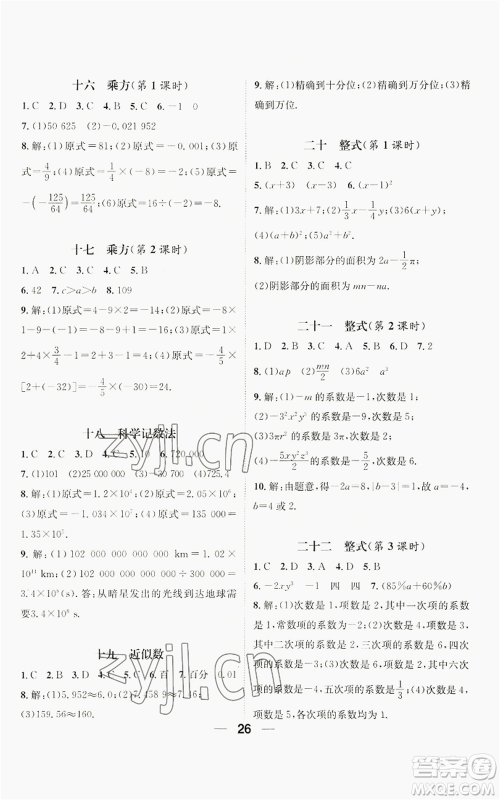 十六　乘方(第1课时)
1. C　2. D　3. C　4. B　5. C　6. －1　0
7. (1)50 625　(2)－0.021 952
8. 解：(1)原式＝81；(2)原式＝－81；(3)原
式＝4/9；(4)原式＝1/4×(－8)＝－2；(5)原式＝
－(－125/64)＝125/64；(6)原式＝16÷(－2)＝－8.
十七　乘方(第2课时)
1. A　2. C　3. C　4. D　5. C
6. 42　7. c＞a＞b　8. 109
9. 解：(1)原式＝4－9＋2＝－3；(2)原式＝－8×
1－9－(－1)＝－8－9＋1＝－16；(3)原式＝－1×
2＋4×3/4＝－2＋3＝1；(4)原式＝－4/5×
[2＋(－32)]＝－4/5×(－30)＝24.
十八　科学记数法
1. C　2. D　3. C　4. D　5. 10　6. 720 000
7. (1)10 000　(2)25 000 000　(3)－30 700　(4)725.4
8. 解：(1)原式＝1.2×10⁴；(2)原式＝2.05×10
；(3)原式＝－1.034×10
9. 解：102 000 000 000 000 km＝1.02×
10¹⁴km；102 000 000 000 000÷300 000＝
3.4×10⁸(s). 从暗星发出的光线到达地球
需要3.4×10⁸ s.
十九　近似数
1. C　2. C　3. D　4. C　5. C　6. 百　7. 百分　0.01
8. 解：(1)5.952≈6.0；(2)7.967≈7.97；
(3)159.56≈160.
9. 解：(1)精确到十分位；(2)精确到万分位；(3)
精确到万位.
二十　整式(第1课时)
1. B　2. C　3. C　4. C
5. (x＋3)　6. (x－1)x²
7. 解：(1)3x＋7；(2)1/3x－1/2；(3)6(x＋y)；
(4)(a＋b)²＋(a－b)².
8. 解：(1)阴影部分的面积为2a²－1/2πa².
(2)阴影部分的面积为mn－na.
二十一　整式(第2课时)
1. D　2. D　3. D　4. D　5. D　6. D　7. 2
8. (1)ap　(2)mn/2　(3)6a²　a³
9. 解：(1)－m的系数是－1，次数是1.
(2)－2x²y³的系数是－2，次数是5.
(3)3πr²的系数是3π，次数是2.
(4)－5xy²z³/2的系数是－5/2，次数是6.
10. 解：由题意，得－2a＝8，|b－3|＝1，故a＝－4，
b＝4或2.
二十二　整式(第3课时)
1. C　2. C　3. A　4. A　5. D
6. －2xy³　－1　四　四　7. (85%a＋60%b)
8. 解：(1)次数是1，项数是2，其中一次项的系数
是1，常数项是7.(2)次数是2，项数是3，其
中二次项的系数是1，一次项的系数是－2，常
数项是1.(3)次数是4，项数是3，其中四次
项的系数是1/3，三次项的系数是－1，二次项
的系数是－1.(4)次数是3，项数是4，各项
系数均是1.
26
zyjl.cn
zyjl.cn